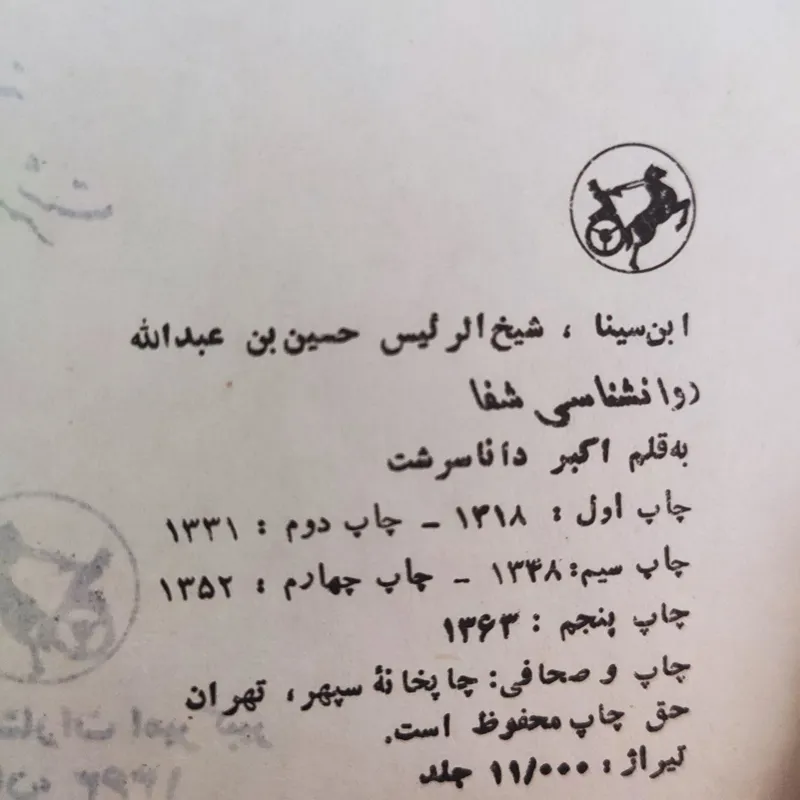 ابن‌سینا ، شیخ‌الرئیس حسین‌بن عبدالله
روانشناسی شفا
به‌قلم اکبر داناسرشت
چاپ اول : ۱۳۱۸ ـ چاپ دوم : ۱۳۳۱
چاپ سیم: ۱۳۳۸ ـ چاپ چهارم : ۱۳۵۲
چاپ پنجم : ۱۳۶۳
چاپ و صحافی: چاپخانهٔ سپهر، تهران
حق چاپ محفوظ است.
تیراژ : ۱۱/۰۰۰ جلد